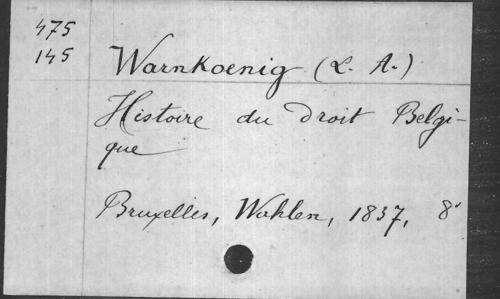 475
145
Warnkoenig (L. A.)
Histoire du Droit Belgi-
que
Bruxelles, Wahlen, 1837, 8°